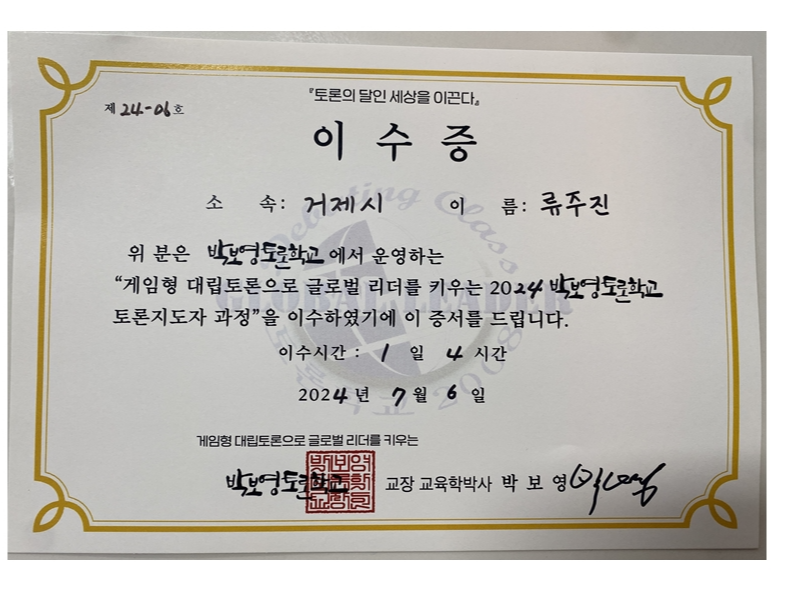 『토론의 달인 세상을 이끈다』
제 24-06 호
이 수 증
소 속: 거제시 이 름: 류주진
위 분은 박보영토론학교 에서 운영하는
“게임형 대립토론으로 글로벌 리더를 키우는 2024 박보영토론학교
토론지도자 과정”을 이수하였기에 이 증서를 드립니다.
이수시간 : 1 일 4 시간
2024년 7월 6일
게임형 대립토론으로 글로벌 리더를 키우는
박보영토론학교 교장 교육학박사 박 보 영
Debating Class
GLOBAL LEADER
토론학교 2008